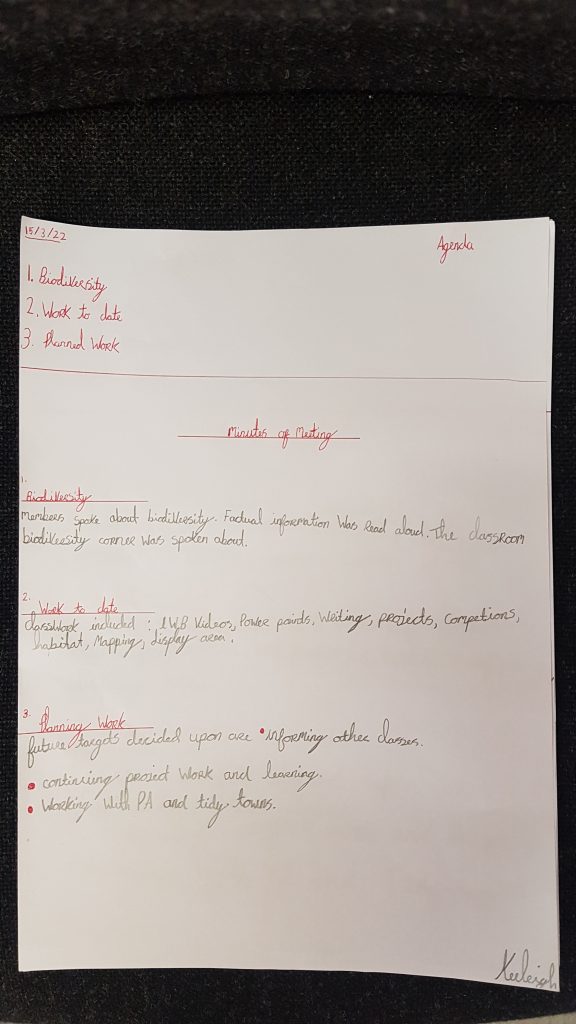 15/3/22
Agenda
1. Biodiversity
2. Work to date
3. Planned Work
Minutes of Meeting
1.
Biodiversity
members spoke about biodiversity. Factual information was read aloud. The classroom
biodiversity corner was spoken about.
2. Work to date
classwork included : IWB Videos, Power points, Writing, projects, Competions,
habitat, Mapping, display area.
3. Planning Work
future targets decided upon are • informing other classes.
• continuing project work and learning.
• Working with PA and tidy towns.
Keeleigh